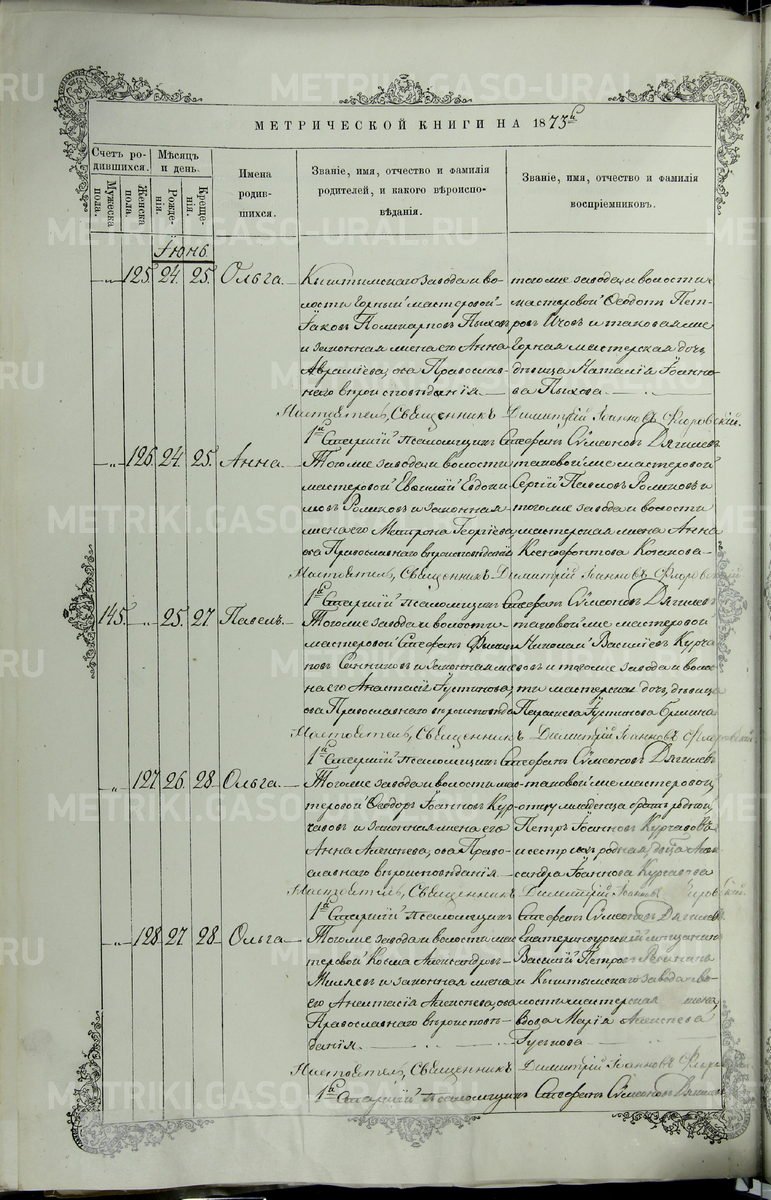 МЕТРИЧЕСКОЙ КНИГИ НА 1873й
Счетъ родившихся.
Мужеска пола.
Женска пола.
Мѣсяцъ и день.
Рожденія.
Крещенія.
Имена родившихся.
Званіе, имя, отчество и фамилія родителей, и какого вѣроисповѣданія.
Званіе, имя, отчество и фамилія воспріемниковъ.
Іюнь
„ 125. 24. 25. Ольга.
Кыштымскаго завода и во-
лости горный мастеровой
Іаковъ Поликарповъ Пыховъ
и законная жена его Анна
Авраміева, оба Православ-
наго вѣроисповѣданія.
тогоже завода и волости
мастеровой Ѳеодотъ Пет-
ровъ и таковая же
Горная мастерская дочь
дѣвица Наталія Іоанно-
ва Пыхова.
Настоятель, Священникъ Димитрій Іоанновъ Флоровскій.
1й Старшій Псаломщикъ Стефанъ Сумеоновъ Дягилевъ
„ 126. 24. 25. Анна.
Тогоже завода и волости
мастеровой Евѳимій Евдоки-
мовъ Роликовъ и законная
жена его Матрона Георгіева,
оба Православнаго вѣроисповѣданія
таковой же мастеровой
Сергій Павловъ Роликовъ и
тогоже завода и волости
мастерская жена Анна
Ксенофонтова
Настоятель, Священникъ Димитрій Іоанновъ Флоровскій
1й Старшій Псаломщикъ Стефанъ Сумеоновъ Дягилевъ
145. „ 25. 27 Павелъ.
Тогоже завода и волости
мастеровой Стефанъ Филип-
повъ Санниковъ и законная же-
на его Анастасія Іустинова,
оба Православнаго вѣроисповѣда
таковой же мастеровой
Николай Василіевъ Курча-
вовъ и тогоже завода и воло-
сти мастерская дочь, дѣвица
Параскева Іустинова
Настоятель, Священникъ Димитрій Іоанновъ Флоровскій
1й Старшій Псаломщикъ Стефанъ Сумеоновъ Дягилевъ
„ 127 26. 28 Ольга.
Тогоже завода и волости мас-
теровой Ѳеодоръ Іоанновъ Кур-
чавовъ и законная жена его
Анна Алексѣева, оба Право-
славнаго вѣроисповѣданія.
таковой же мастеровой,
отцу младенца братъ родной,
Петръ Іоанновъ Курчавовъ
и сестра родная, Алек-
сандра Іоаннова Курчавова
Настоятель, Священникъ Димитрій Іоанновъ Флоровскій.
1й Старшій Псаломщикъ Стефанъ Сумеоновъ Дягилевъ
„ 128 27 28 Ольга
Тогоже завода и волости мас-
теровой Косма Александровъ
и законная жена
его Анастасія Алексѣева, оба
Православнаго вѣроисповѣ-
данія.
Екатеринбургскій мѣщанинъ
Василій Петровъ
и Кыштымскаго завода и во-
лости мастерская жена,
вдова Марія Алексѣева
Гуськова
Настоятель, Священникъ Димитрій Іоанновъ Флоровскій
1й Старшій Псаломщикъ Стефанъ Сумеоновъ Дягилевъ
METRIKI.GASO-URAL.RU